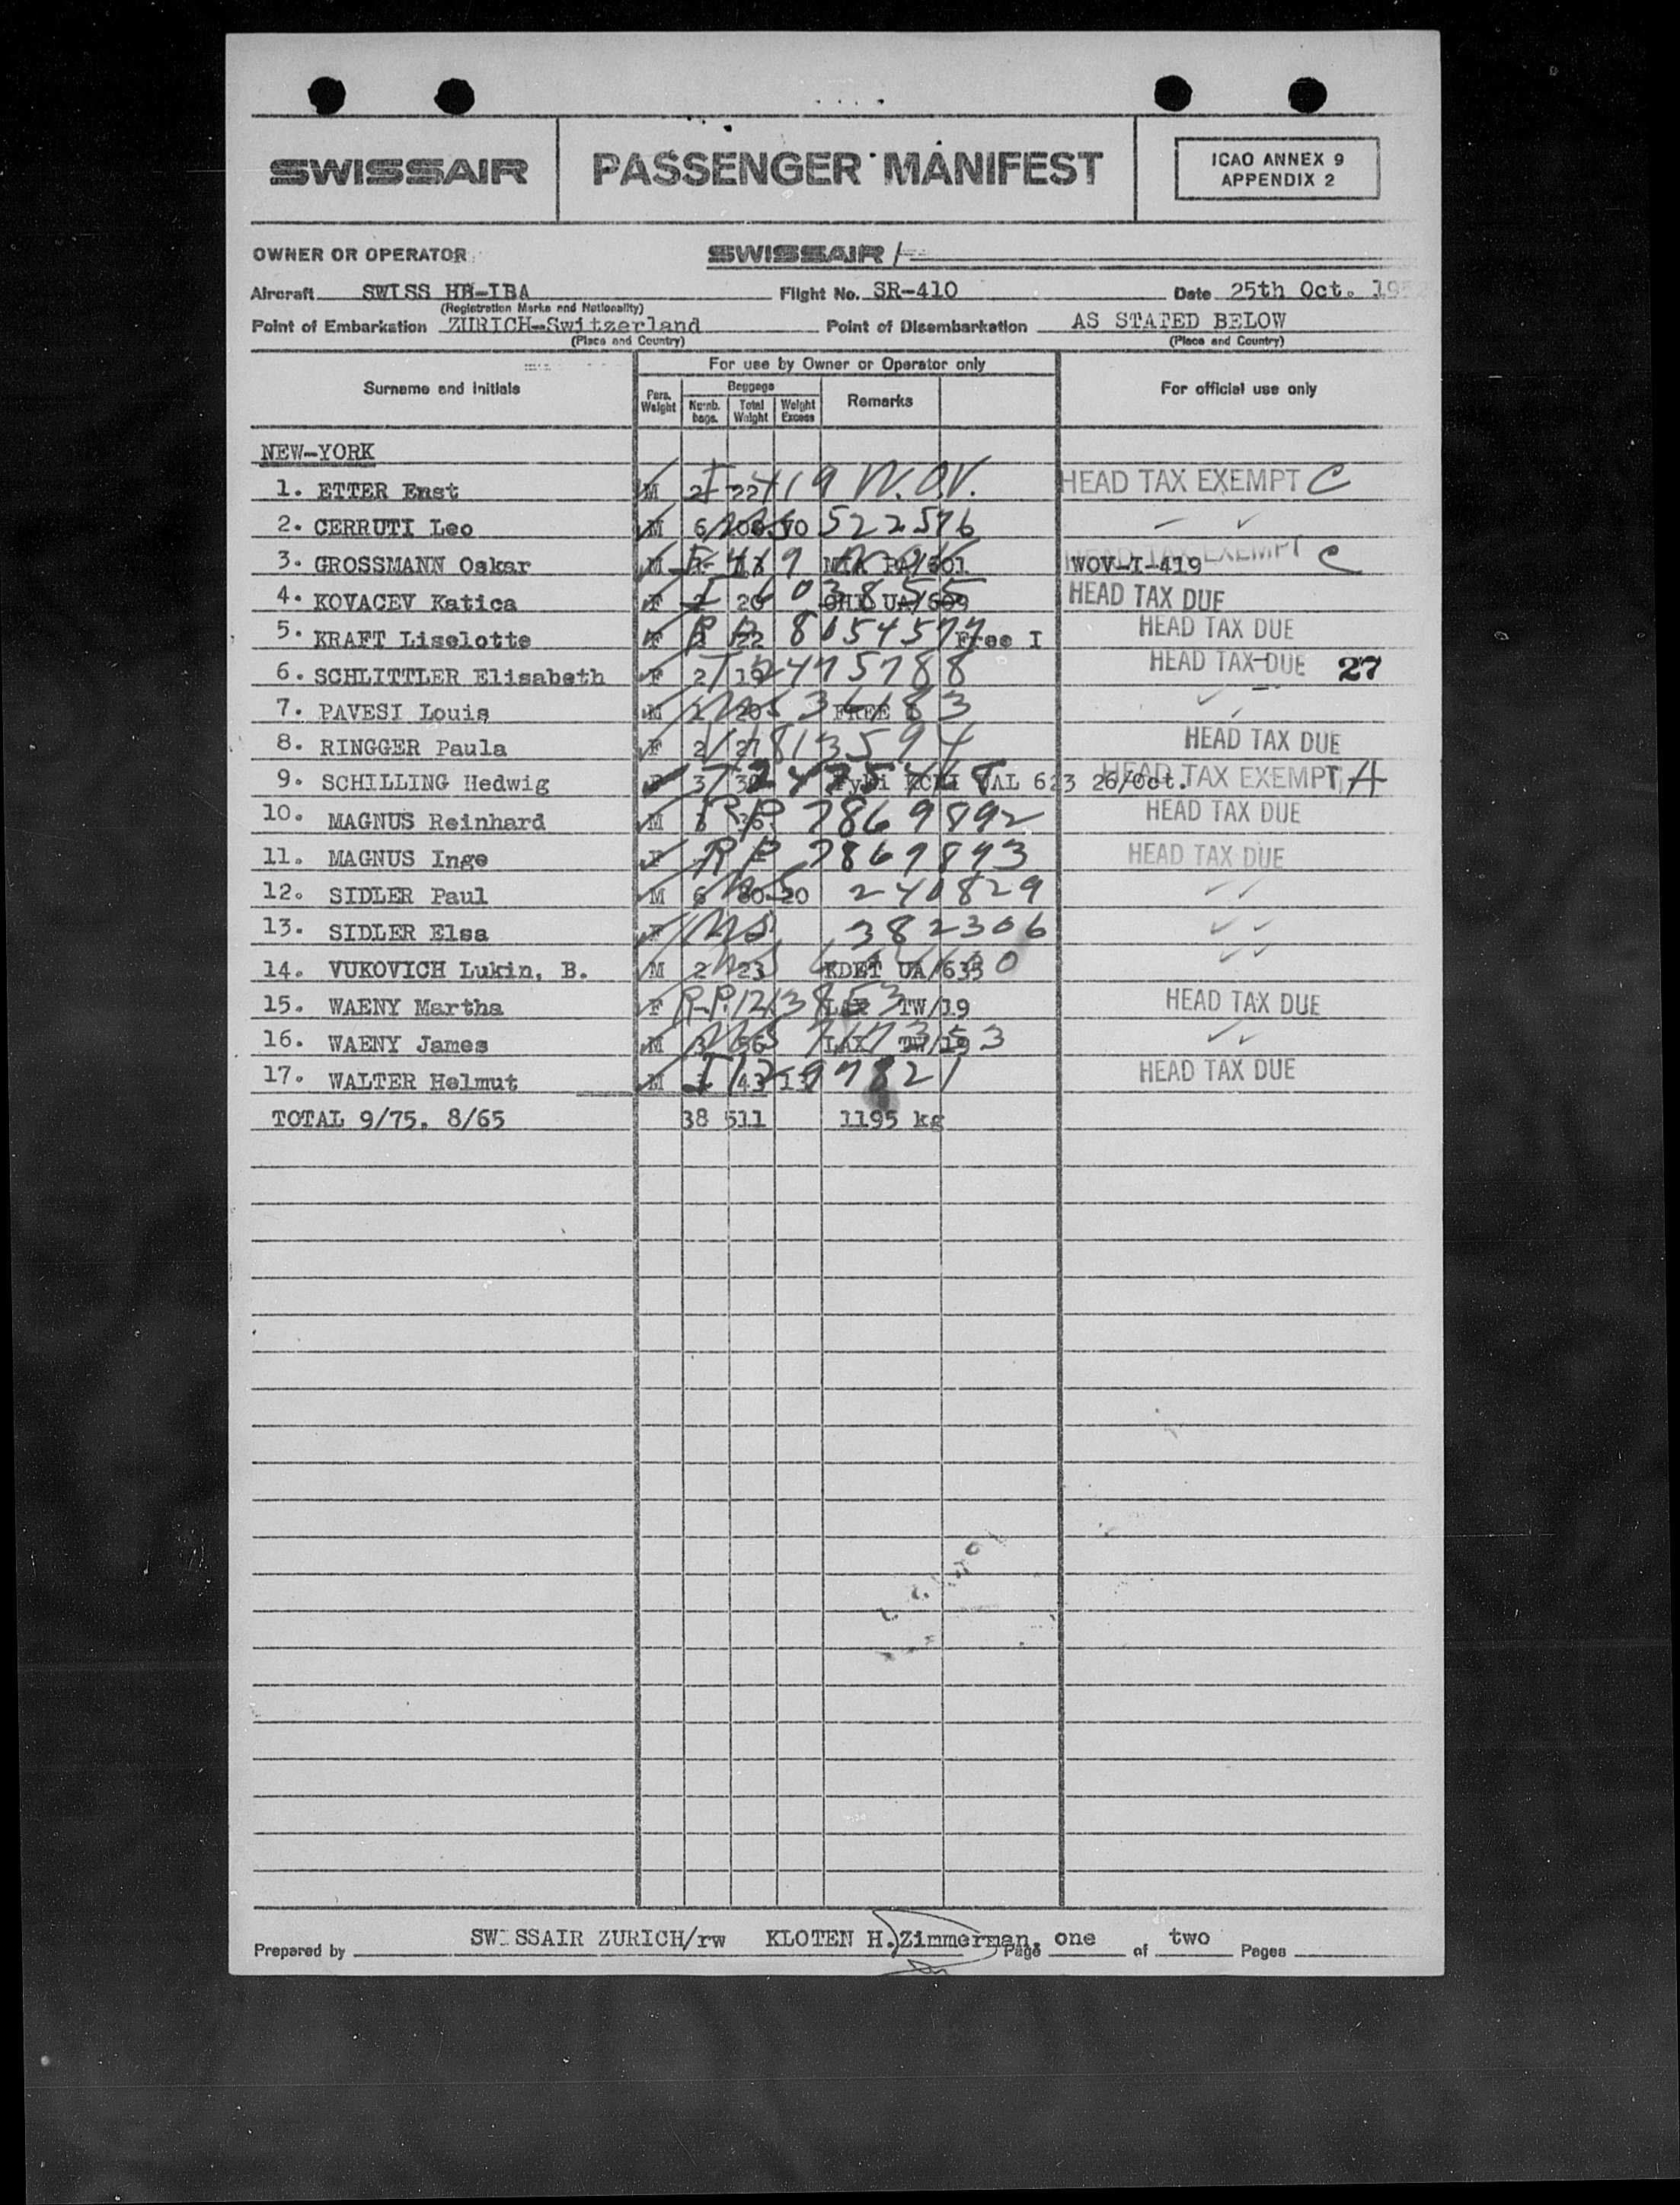 SWISSAIR
PASSENGER MANIFEST
ICAO ANNEX 9
APPENDIX 2
OWNER OR OPERATOR SWISSAIR /
Aircraft SWISS HB-IBA Flight No. SR-410 Date 25th Oct.
(Registration Marks and Nationality)
Point of Embarkation ZURICH-Switzerland Point of Disembarkation AS STATED BELOW
(Place and Country) (Place and Country)
For use by Owner or Operator only
Surname and initials Pers. Weight Baggage Numb. bags. Total Weight Weight Excess Remarks For official use only
NEW-YORK
1. ETTER Enst M 2 22 I-419 W.O.V. HEAD TAX EXEMPT C
2. CERRUTI Leo M 6 522576
3. GROSSMANN Oskar M 419 WOV-I-419 HEAD TAX EXEMPT C
4. KOVACEV Katica F 20 UA/609 HEAD TAX DUE
5. KRAFT Liselotte F 22 Free I HEAD TAX DUE
6. SCHLITTLER Elisabeth F 2 19 HEAD TAX DUE 27
7. PAVESI Louis M 20 FREE
8. RINGGER Paula F 2 27 HEAD TAX DUE
9. SCHILLING Hedwig F 3 UAL 623 26/Oct. HEAD TAX EXEMPT A
10. MAGNUS Reinhard M 36 RP 7869892 HEAD TAX DUE
11. MAGNUS Inge F RP 7869893 HEAD TAX DUE
12. SIDLER Paul M 6 20 240829
13. SIDLER Elsa F 382306
14. VUKOVICH Lukin, B. M 2 23 KDET UA/635
15. WAENY Martha F RP LAX TW/19 HEAD TAX DUE
16. WAENY James M 3 56 LAX TW/19
17. WALTER Helmut M 43 HEAD TAX DUE
TOTAL 9/75, 8/65 38 511 1195 kg
Prepared by SWISSAIR ZURICH/rw KLOTEN H. Zimmerman, Page one of two Pages